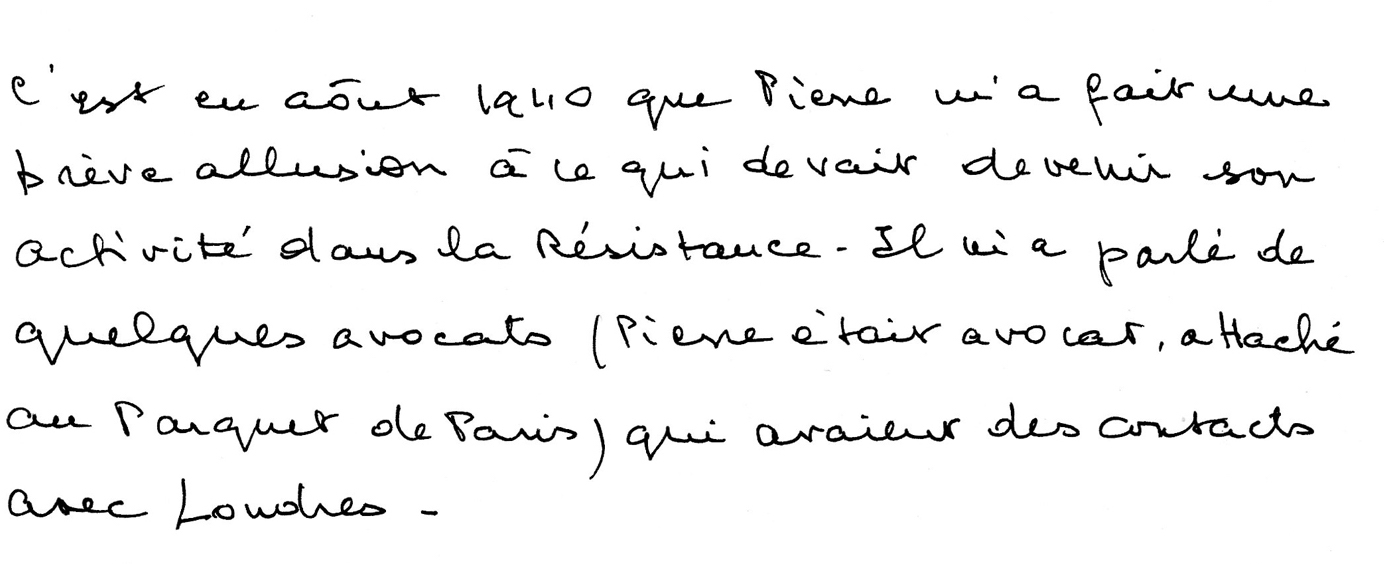 C'est en août 1940 que Pierre m'a fait une
brève allusion à ce qui devait devenir son
activité dans la Résistance - Il m'a parlé de
quelques avocats (Pierre était avocat, attaché
au Parquet de Paris) qui avaient des contacts
avec Londres -